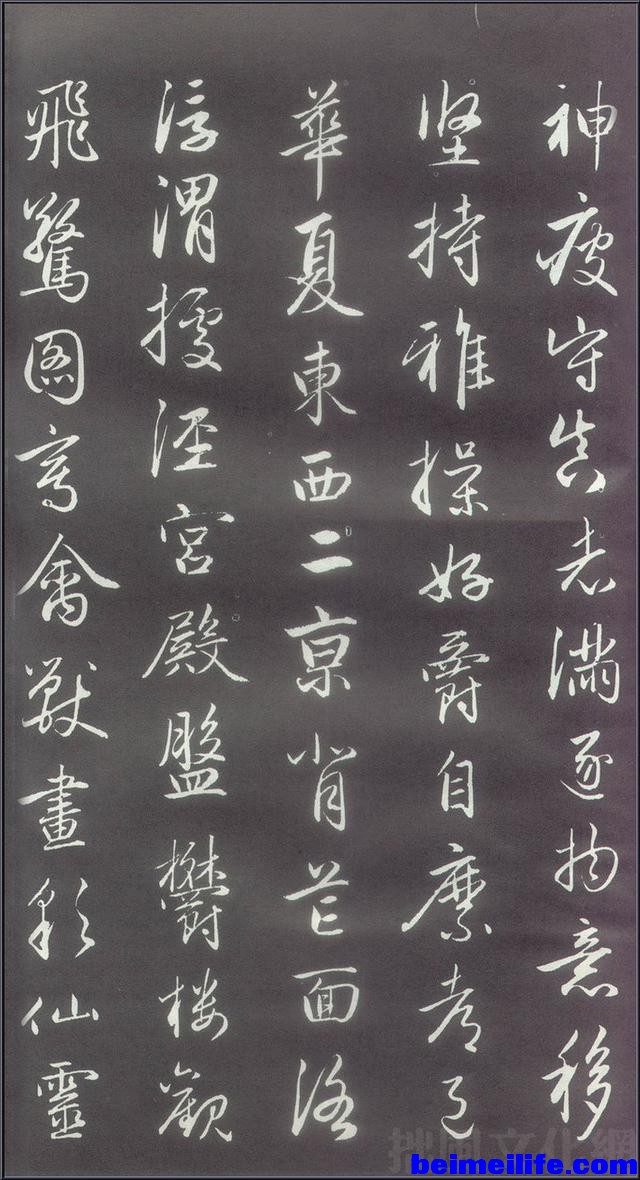 神疲守真志滿逐物意移
堅持雅操好爵自縻都邑
華夏東西二京背芒面洛
浮渭據涇宮殿盤鬱樓觀
飛驚圖寫禽獸畫彩仙靈
拙風文化網
beimeilife.com